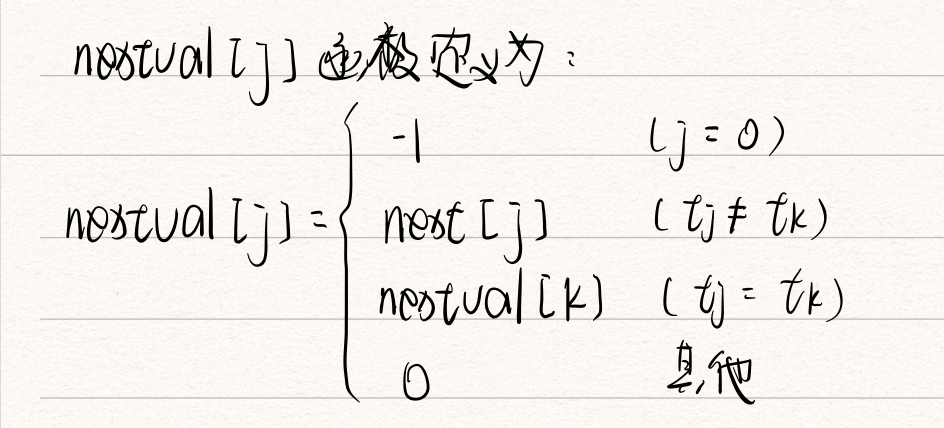 nextval [j] 函数定义为：
-1 (j = 0)
nextval [j] = { next [j] (tj ≠ tk)
nextval [k] (tj = tk)
0 其他